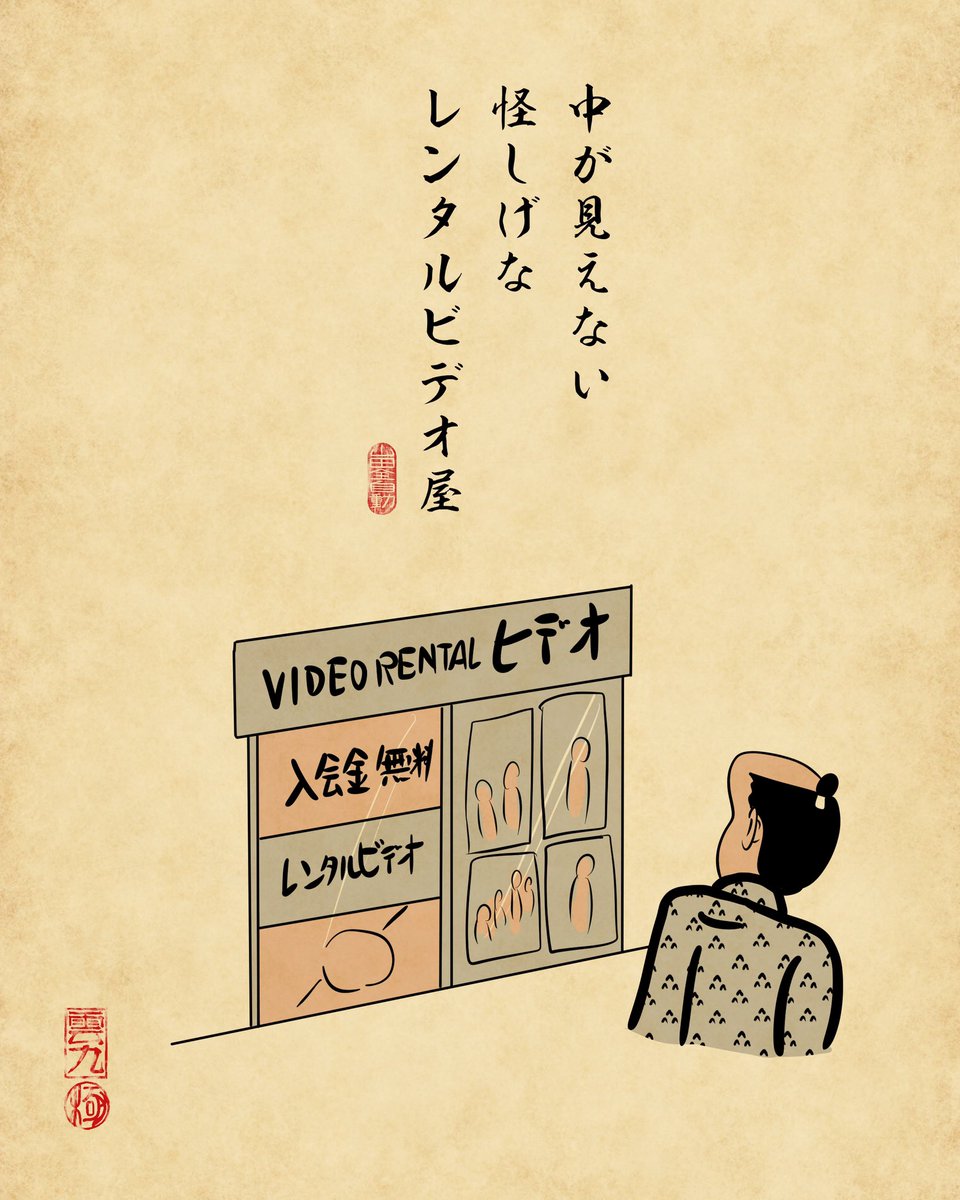 中が見えない
怪しげな
レンタルビデオ屋
VIDEO RENTAL ヒデオ
入会金無料
レンタルビデオ